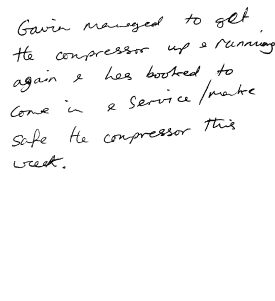 Gavin managed to get
the compressor up & running
again & has booked to
come in & service/make
safe the compressor this
week.